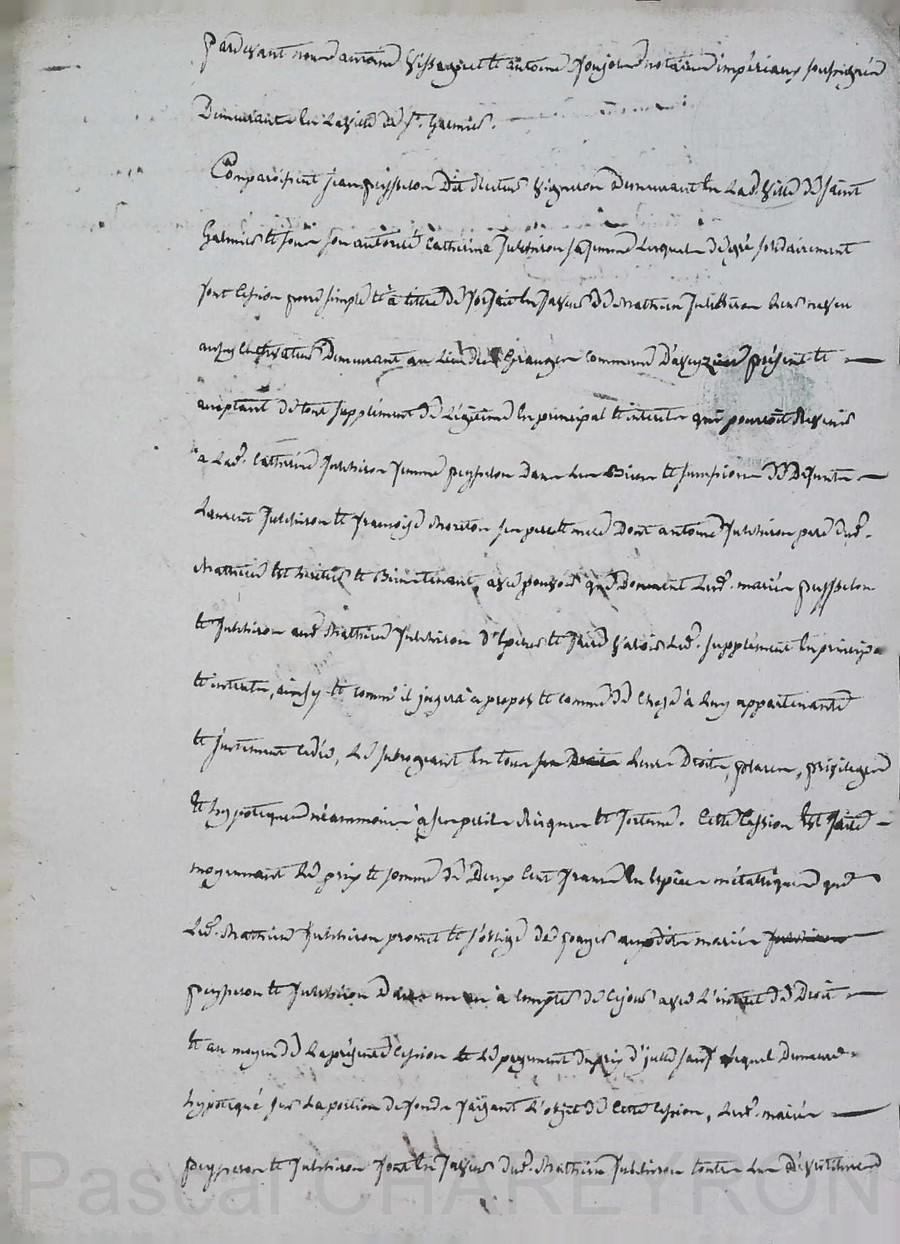 Pardevant nous antoine et antoine notaires impériaux soussignés
Demeurants en la ville de St. Galmier.
Comparoissent jean peysselon Dit vigneron Demeurant en Lad. ville de Saint
Galmier et sous son autorité Catherine Juthiron sa femme Lesquels de gré solidairement
font Cession pure simple et à titre de forfait en faveur de Mathieu Jutthiron leur neveu
aussy Cultivateur Demeurant au Lieu de Granges Commune D'aveyzieu présent et
acceptant de tout supplément de Légitime En principal et intérêts qui pourroit Revenir
a Lad. Catherine Jutthiron femme peysselon Dans Les Biens et successions De Défunts
Laurent Jutthiron et françoise ses pere et mere Dont antoine Jutthiron pere dud.
Mathieu Est héritier et Bientenant, avec pouvoir que Donnent Lesd. mariés peysselon
et Jutthiron aud. Mathieu Jutthiron D'Exiger et faire valoir Led. supplément En principal
et intérêts, ainsy et comme il jugera à propos et comme de Chose à Luy appartenante
et justement Cédée, Le subrogeant En tous ses Droits Leurs Droits, places, privileges
et hypoteques néanmoins à ses perils Risques et fortune. Cette Cession Est faite
moyennant Le prix et somme de Deux Cent francs En Espèces métalliques que
Led. Mathieu Jutthiron promet et s'oblige de payer auxdits mariés Jutthiron
peysselon et Jutthiron Dans un an à compter de Ce jour avec L'intérêt de Droit
et au moyen de La présente Cession et Le payement du prix d'icelle sauf Lequel Demeure
hypotéqué sur La portion de fonds faisant L'objet de Cette Cession, Lesd. mariés
peysselon et Jutthiron font En faveur dud. Mathieu Jutthiron toutes Les Dévêtitures
Pascal CHAREYRON